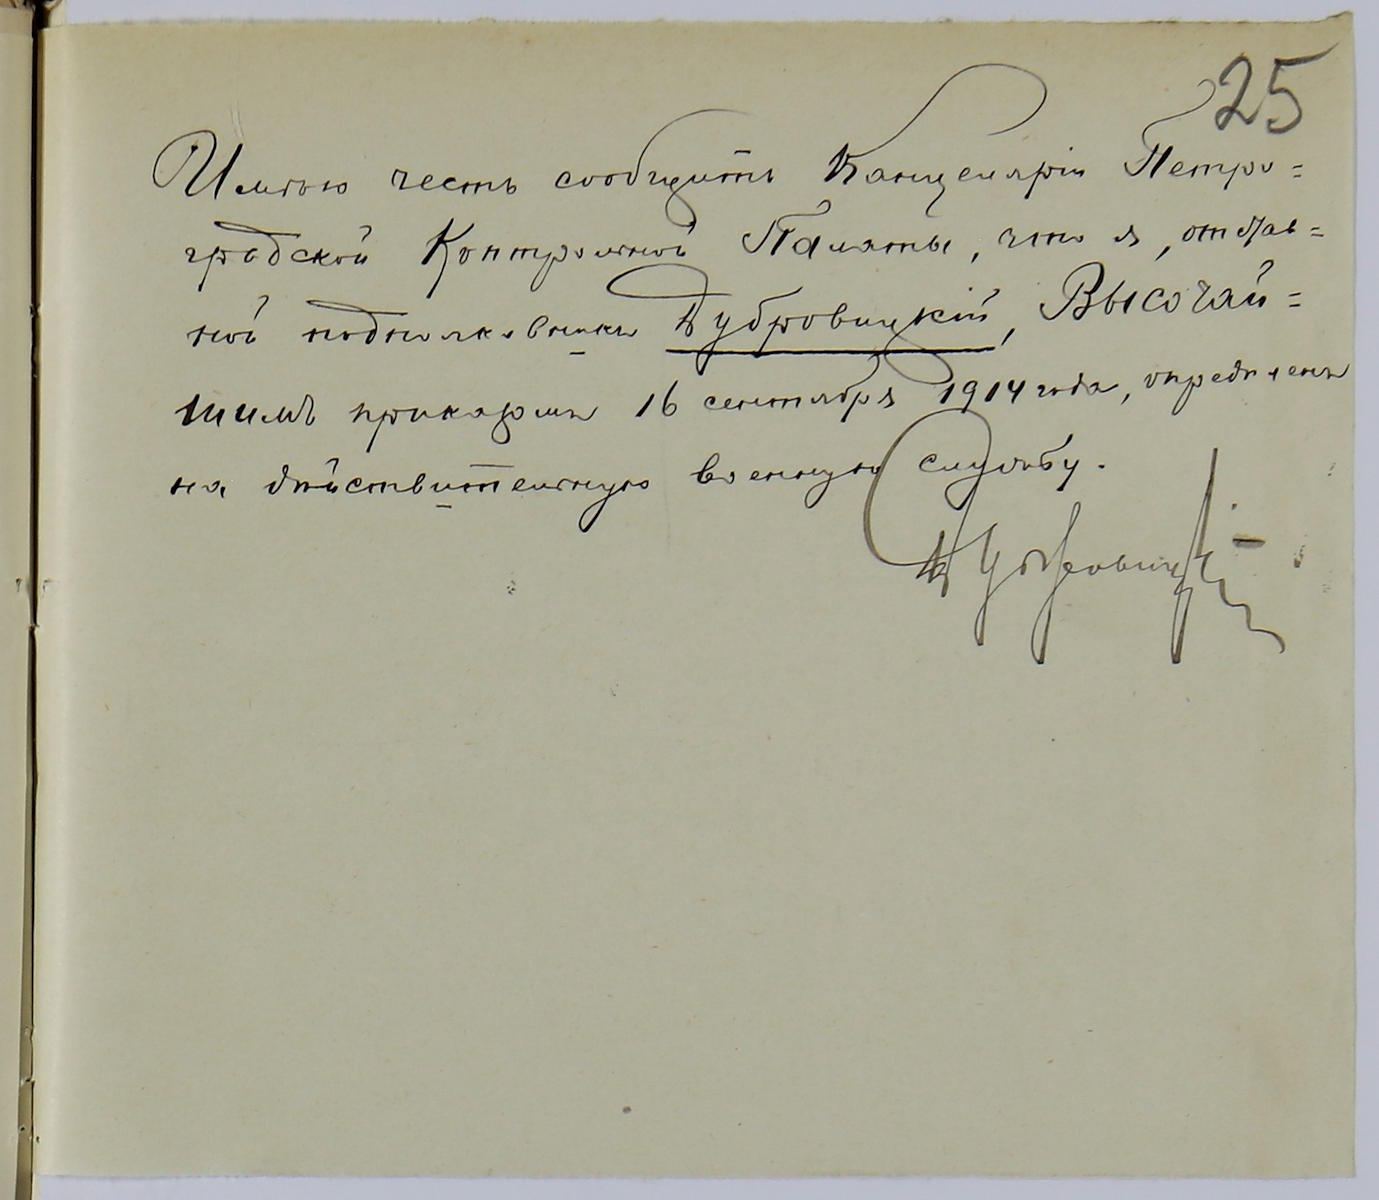 25
Имѣю честь сообщить Канцеляріи Петро=
градской Контрольной Палаты, что я, отстав=
ной подполковникъ Дубровицкій, Высочай=
шимъ приказомъ 16 сентября 1914 года, опредѣленъ
на дѣйствительную военную службу.
Дубровицкій